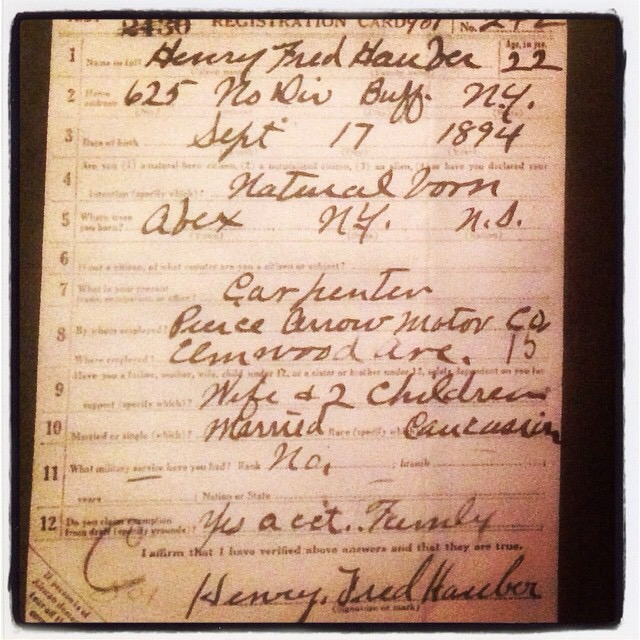 2430 REGISTRATION CARD No. 242
1 Name in full Henry Fred Hauber Age, in yrs. 22
2 Home address 625 No Div Buff. N.Y.
3 Date of birth Sept 17 1894
4 Are you (1) a natural-born citizen, (2) a naturalized citizen, (3) an alien, (4) or have you declared your
intention (specify which)? Natural born
5 Where were you born? Alex N.Y. U.S.
6 If not a citizen, of what country are you a citizen or subject?
7 What is your present trade, occupation, or office? Carpenter
8 By whom employed? Pierce Arrow Motor Co
Where employed? Elmwood Ave. 15
9 Have you a father, mother, wife, child under 12, or a sister or brother under 12, solely dependent on you for
support (specify which)? Wife & 2 Children
10 Married or single (which)? Married Race (specify which)? Caucasian
11 What military service have you had? Rank No, ; branch
years ; Nation or State
12 Do you claim exemption from draft (specify grounds)? Yes acct. Family
I affirm that I have verified above answers and that they are true.
Henry, Fred Hauber
(Signature or mark)
If person is of